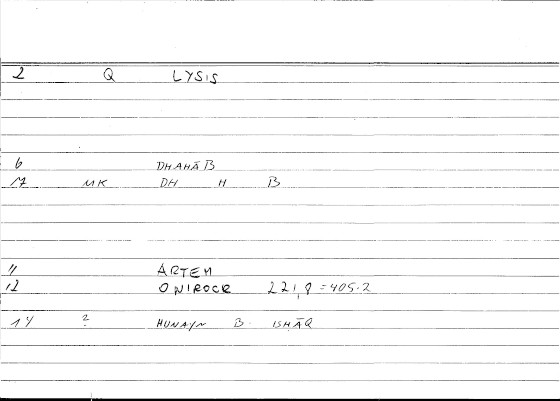 2 Q LYSIS
6 DHAHĀB
17 MK DH H B
11 ARTEM
12 ONIROCR 221,9 = 405.2
14 ? HUNAYN B. ISHĀQ